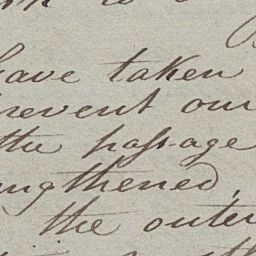 have taken
prevent our
the passage
engthened,
the outer